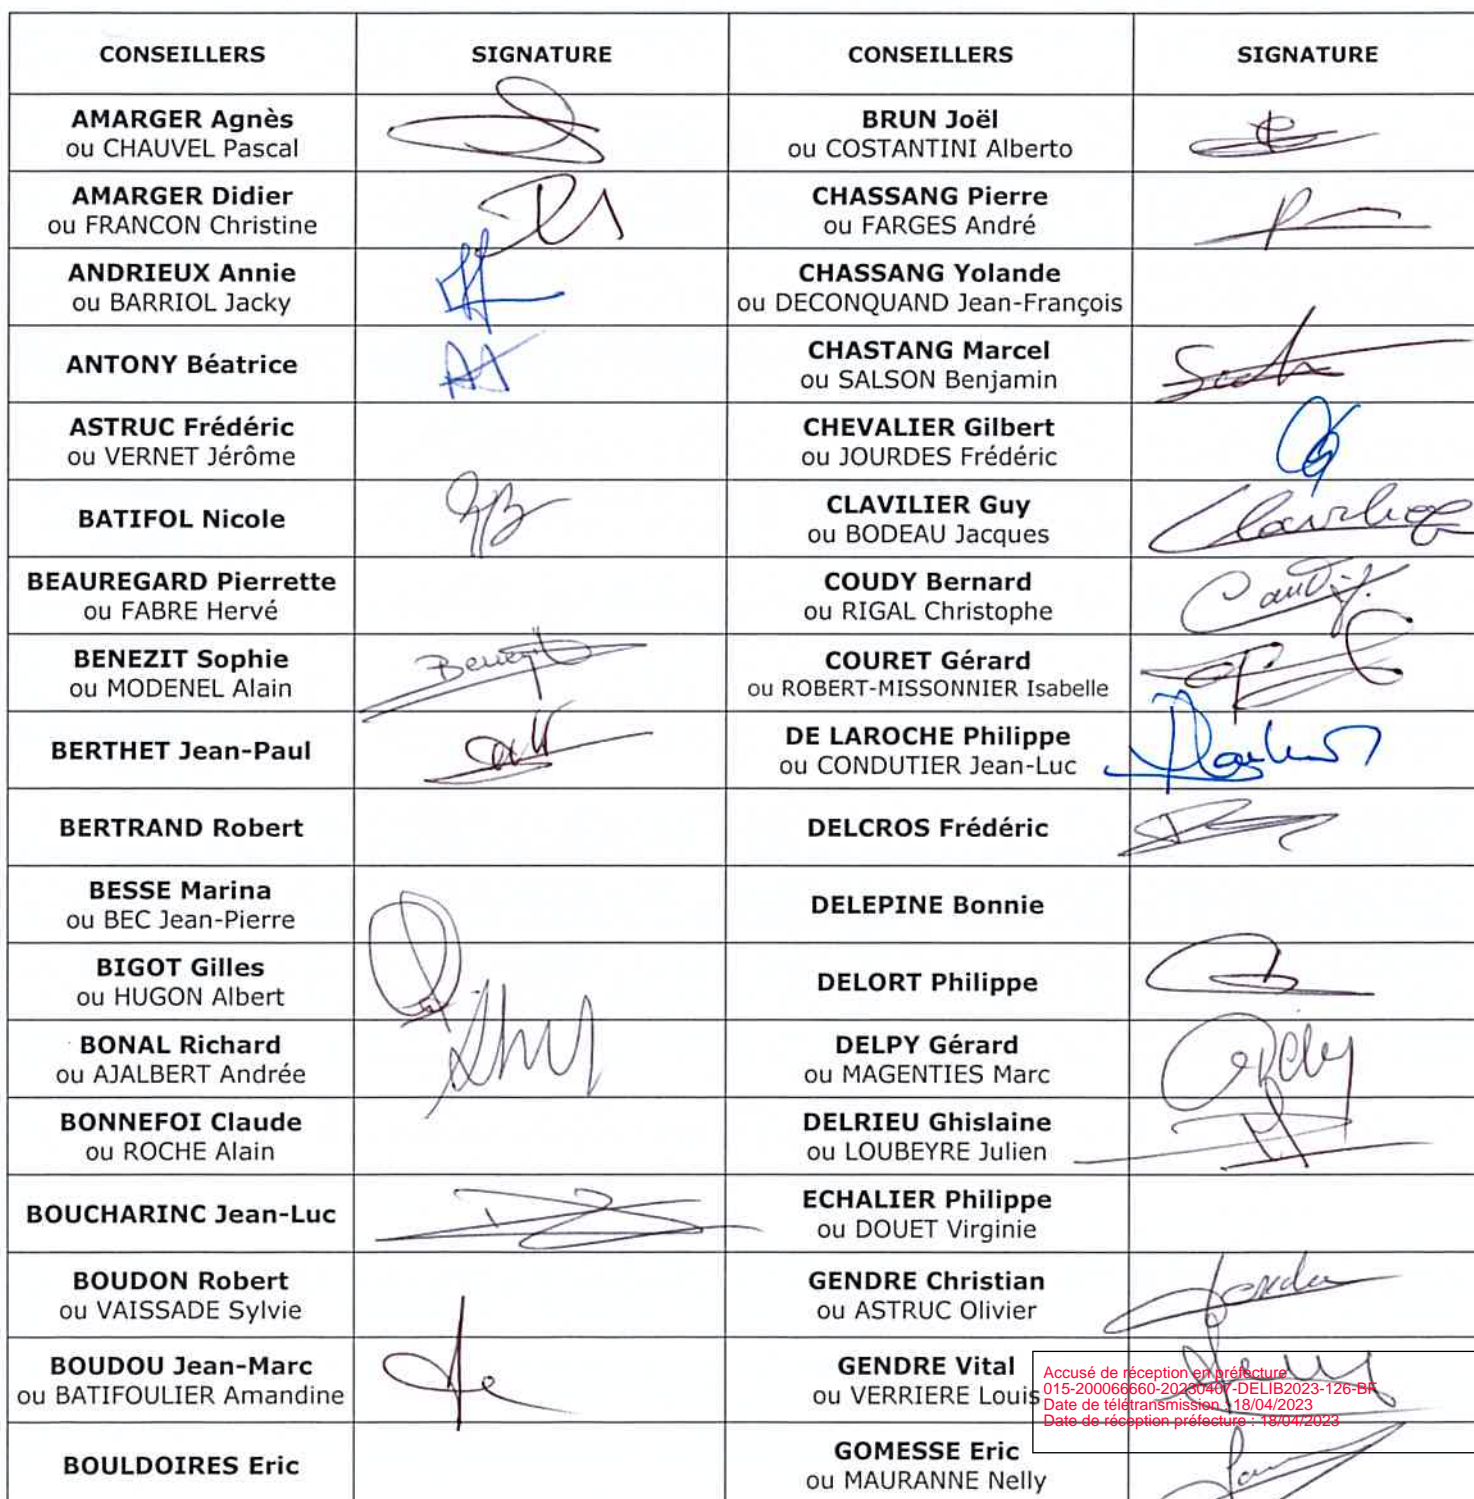 CONSEILLERS SIGNATURE CONSEILLERS SIGNATURE
AMARGER Agnès
ou CHAUVEL Pascal
BRUN Joël
ou COSTANTINI Alberto
AMARGER Didier
ou FRANCON Christine
CHASSANG Pierre
ou FARGES André
ANDRIEUX Annie
ou BARRIOL Jacky
CHASSANG Yolande
ou DECONQUAND Jean-François
ANTONY Béatrice
CHASTANG Marcel
ou SALSON Benjamin
ASTRUC Frédéric
ou VERNET Jérôme
CHEVALIER Gilbert
ou JOURDES Frédéric
BATIFOL Nicole
CLAVILIER Guy
ou BODEAU Jacques
BEAUREGARD Pierrette
ou FABRE Hervé
COUDY Bernard
ou RIGAL Christophe
BENEZIT Sophie
ou MODENEL Alain
Benezit
COURET Gérard
ou ROBERT-MISSONNIER Isabelle
BERTHET Jean-Paul
DE LAROCHE Philippe
ou CONDUTIER Jean-Luc
BERTRAND Robert
DELCROS Frédéric
BESSE Marina
ou BEC Jean-Pierre
DELEPINE Bonnie
BIGOT Gilles
ou HUGON Albert
DELORT Philippe
BONAL Richard
ou AJALBERT Andrée
DELPY Gérard
ou MAGENTIES Marc
BONNEFOI Claude
ou ROCHE Alain
DELRIEU Ghislaine
ou LOUBEYRE Julien
BOUCHARINC Jean-Luc
ECHALIER Philippe
ou DOUET Virginie
BOUDON Robert
ou VAISSADE Sylvie
GENDRE Christian
ou ASTRUC Olivier
BOUDOU Jean-Marc
ou BATIFOULIER Amandine
GENDRE Vital
ou VERRIERE Louis
Accusé de réception en préfecture
015-200066660-20230407-DELIB2023-126-BF
Date de télétransmission : 18/04/2023
Date de réception préfecture : 18/04/2023
BOULDOIRES Eric
GOMESSE Eric
ou MAURANNE Nelly